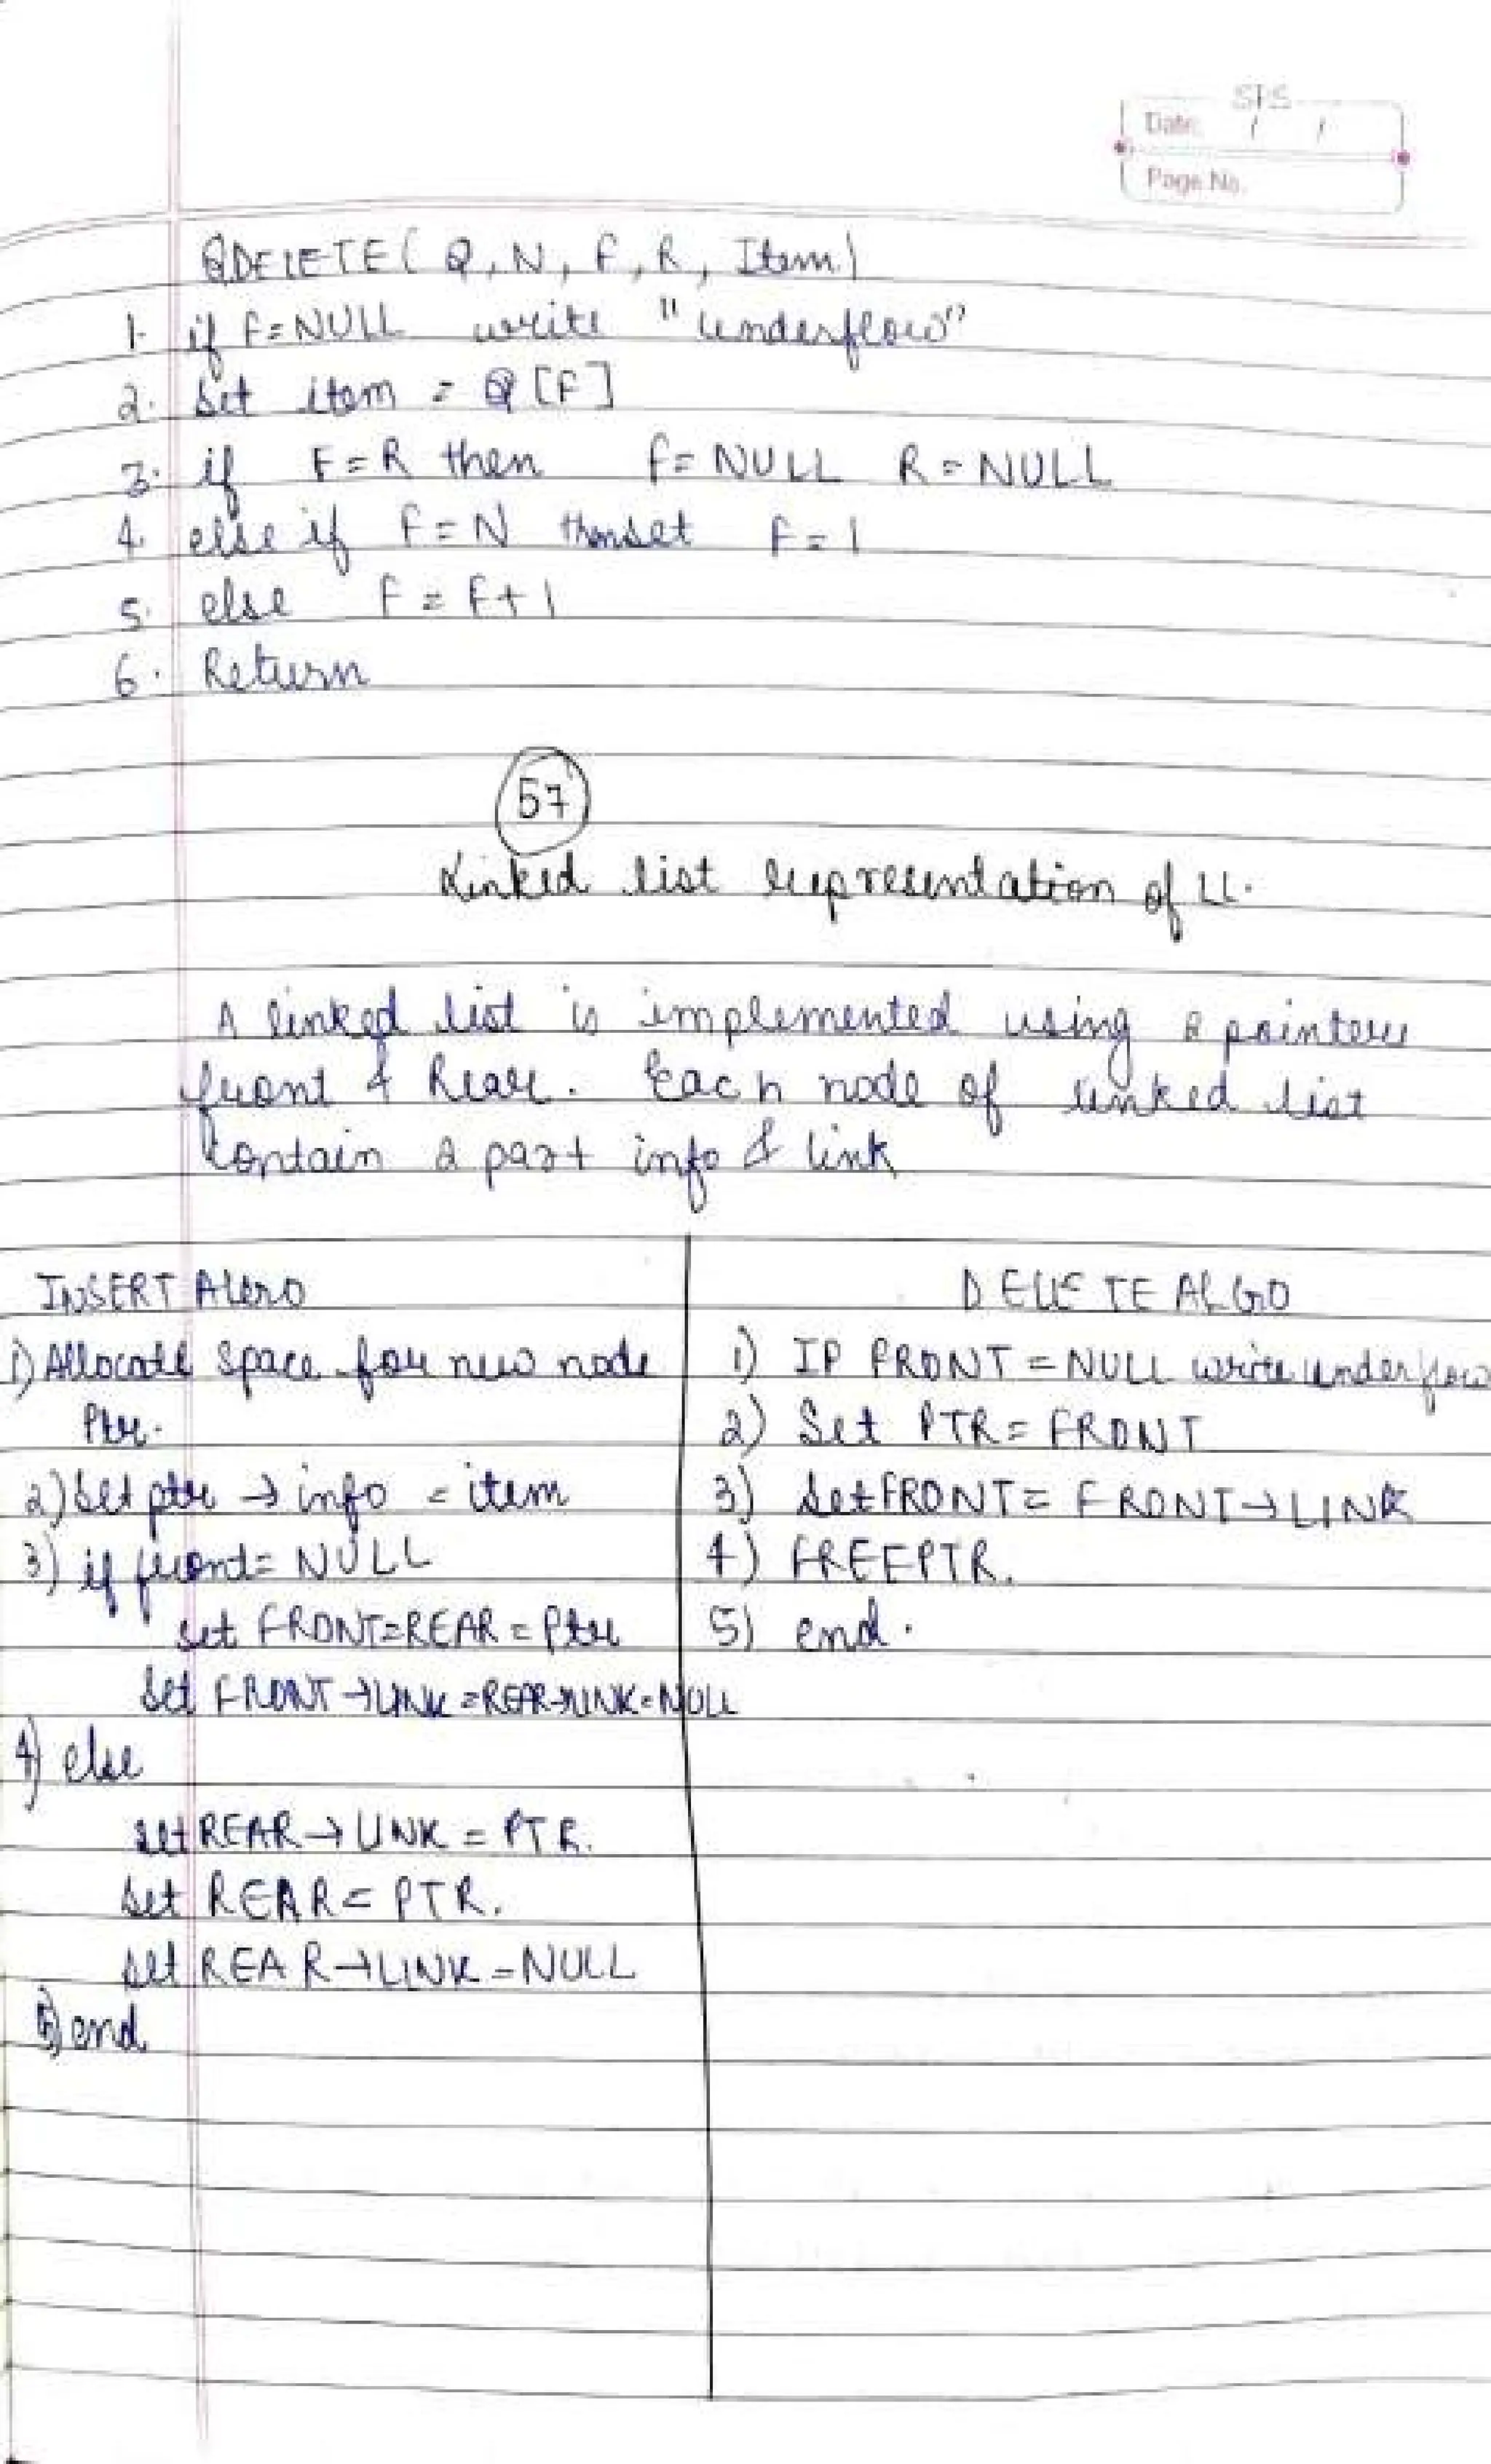 SPS
Date / /
Page No.
QDELETE( Q, N, F, R, Item)
1. if F=NULL write "Underflow"
2. Set item = Q[F]
3. if F=R then F=NULL R=NULL
4. else if F=N then set F=1
5. else F=F+1
6. Return
57
Linked list representation of LL.
A linked list is implemented using 2 pointers
front & Rear. Each node of linked list
Contain 2 part info & link
INSERT ALGO
1) Allocate space for new node
Ptr.
2) Set ptr → info = item
3) if front = NULL
set FRONT=REAR=Ptr
Set FRONT→LINK=REAR→LINK=NULL
4) else
set REAR→LINK = PTR.
Set REAR = PTR.
set REAR→LINK=NULL
5) end
DELETE ALGO
1) IF FRONT=NULL write underflow
2) Set PTR=FRONT
3) Set FRONT= FRONT→LINK
4) FREEPTR.
5) end.